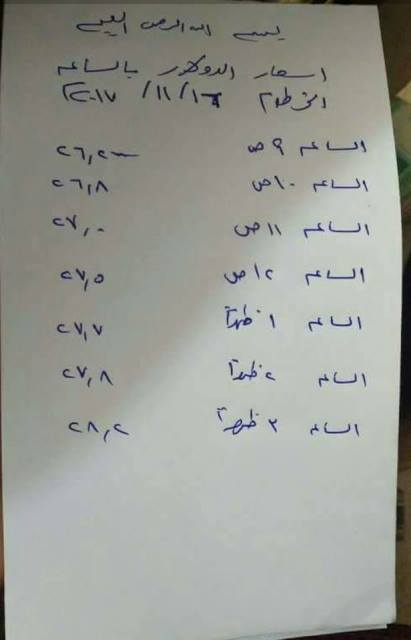 بسم الله الرحمن الرحيم
اسعار الدولار بالساعه
الخرطوم ١٦/١١/٢٠١٧
الساعه ٩ ص ٢٦,٢
الساعه ١٠ ص ٢٦,٨
الساعه ١١ ص ٢٧,٠
الساعه ١٢ ص ٢٧,٥
الساعه ١ ظهراً ٢٧,٧
الساعه ٢ ظهراً ٢٧,٨
الساعه ٣ ظهراً ٢٨,٢